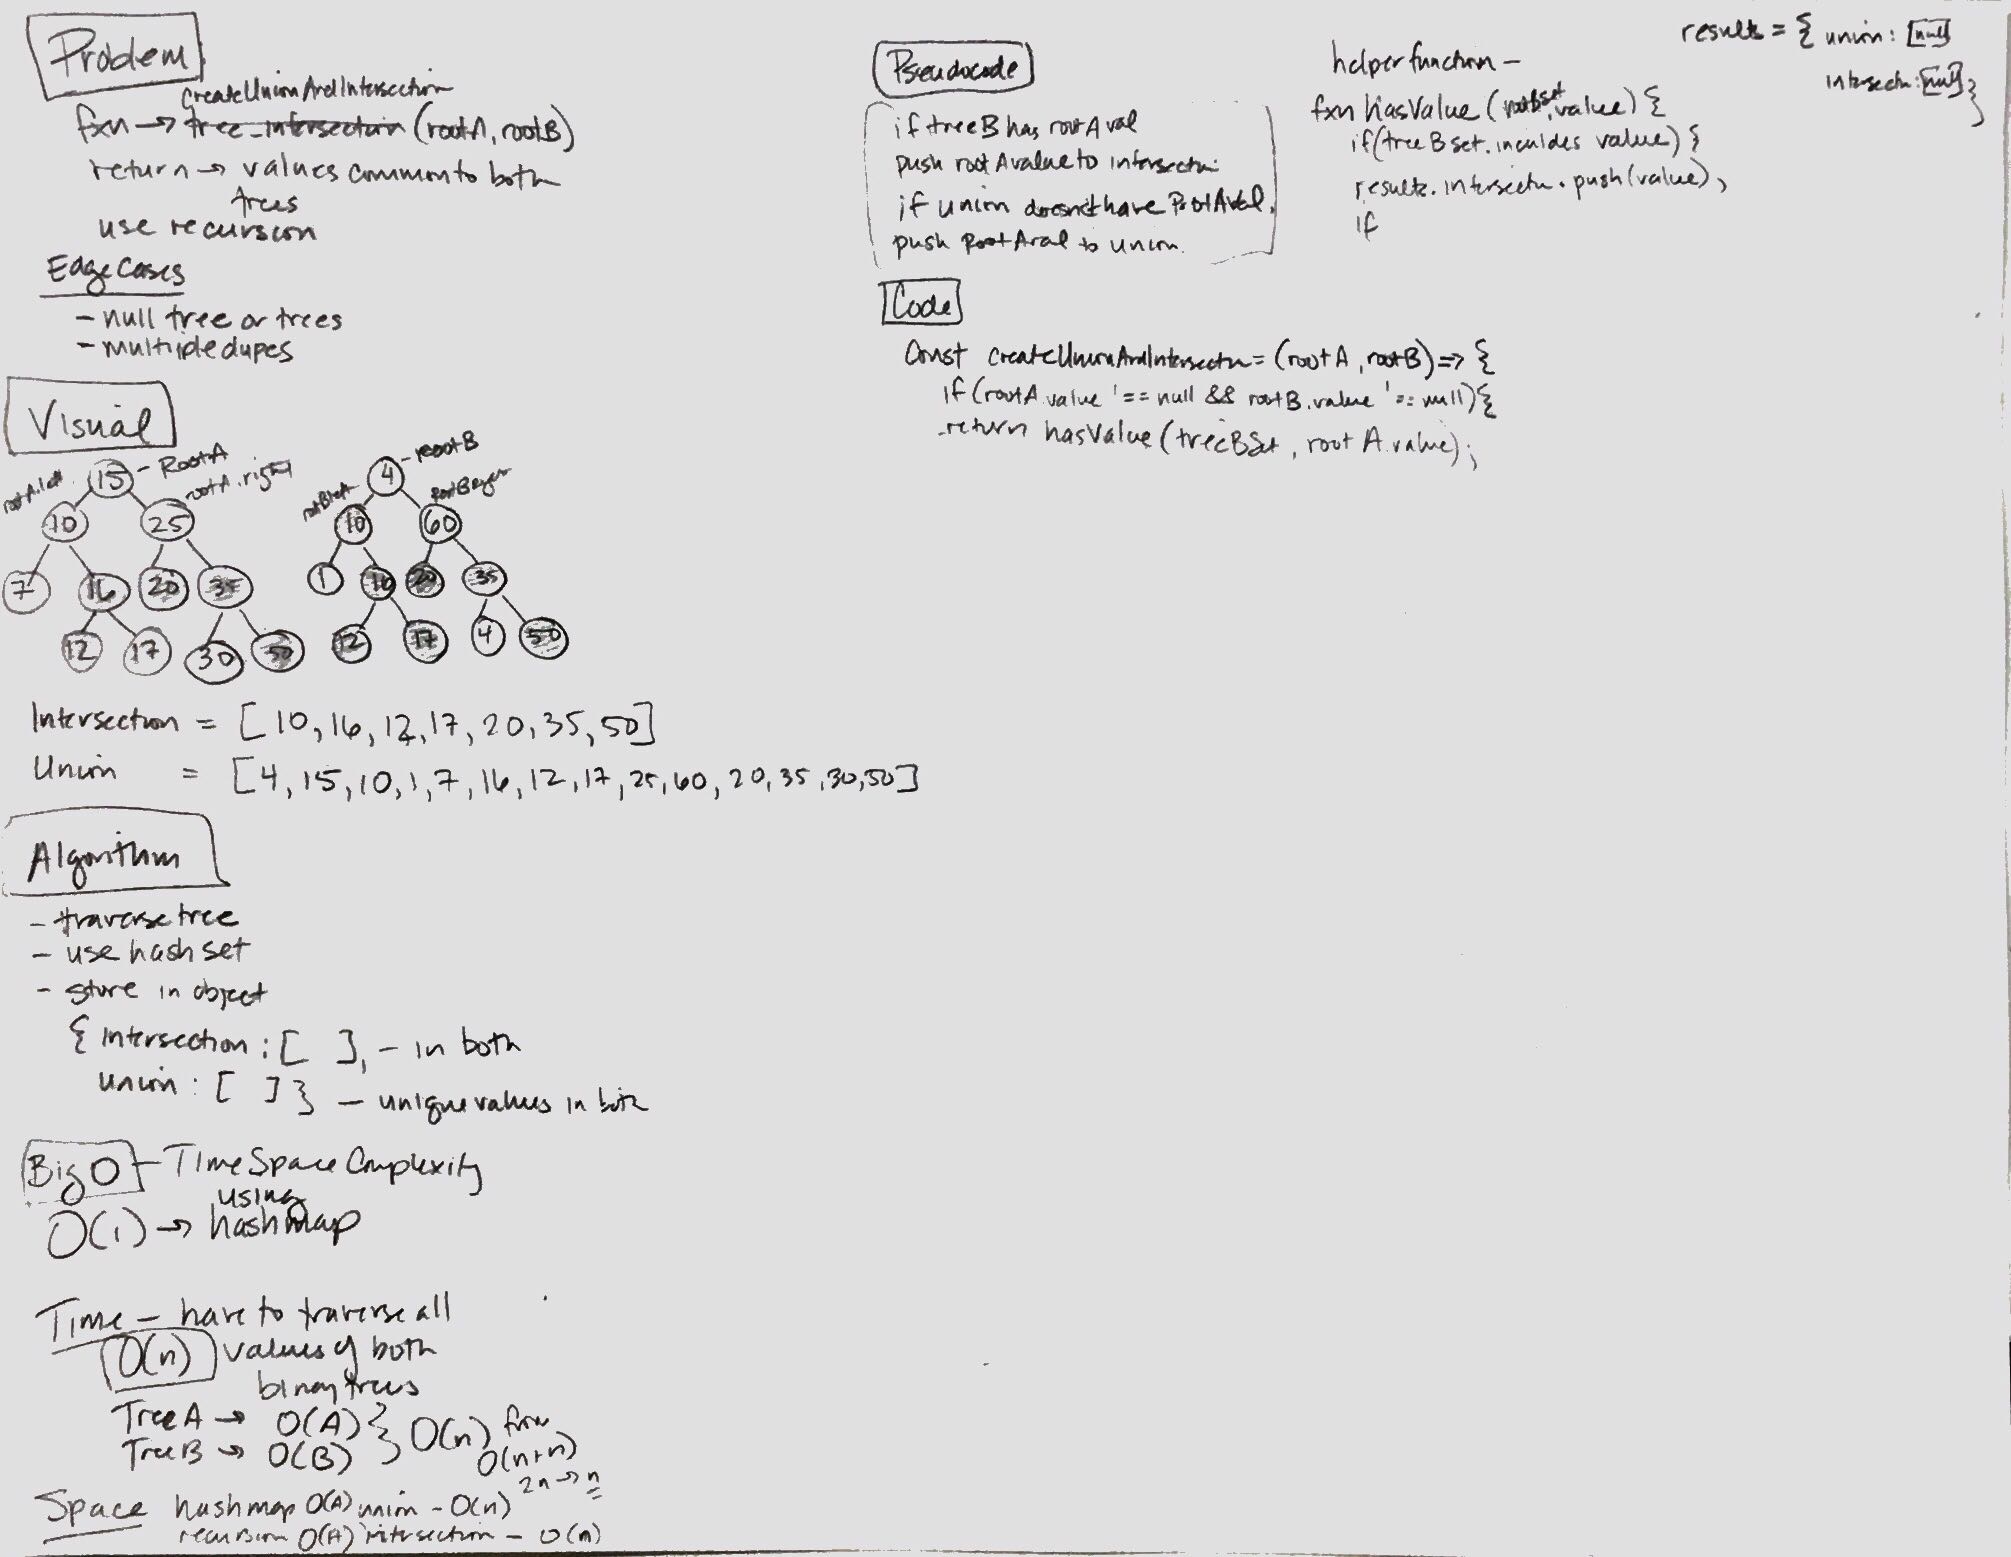 Problem
createUnionAndIntersection
fxn → tree_intersection (rootA, rootB)
return → values common to both
trees
use recursion
Edge Cases
- null tree or trees
- multiple dupes
Visual
15 - RootA
rootA.left
rootA.right
10 25
7 16 20 35
12 17 30 50
4 - rootB
rootB left
10 60
1 16 20 35
12 17 4 50
Intersection = [10, 16, 12, 17, 20, 35, 50]
Union = [4, 15, 10, 1, 7, 16, 12, 17, 25, 60, 20, 35, 30, 50]
Algorithm
- traverse tree
- use hash set
- store in object
{ intersection : [ ], - in both
union : [ ] } - unique values in both
Big O - Time Space Complexity
using
O(1) → hashmap
Time - have to traverse all
O(n) values of both
binary trees
Tree A → O(A) } O(n) from
Tree B → O(B) O(n+n)
2n → n
Space hashmap O(A) union - O(n)
recursion O(A) intersection - O(n)
Pseudocode
if treeB has rootA val
push rootA value to intersectn
if union doesn't have RootAval,
push RootAval to union.
Code
Const createUnionAndIntersectn = (rootA, rootB) => {
if (rootA.value !== null && rootB.value !== null) {
return hasValue (treeBSet, rootA.value);
helper function -
fxn hasValue ( value) {
if (treeBset.inculdes value) {
results.intersectn.push(value);
if
results = { union: [null]
intersectn: [null] }